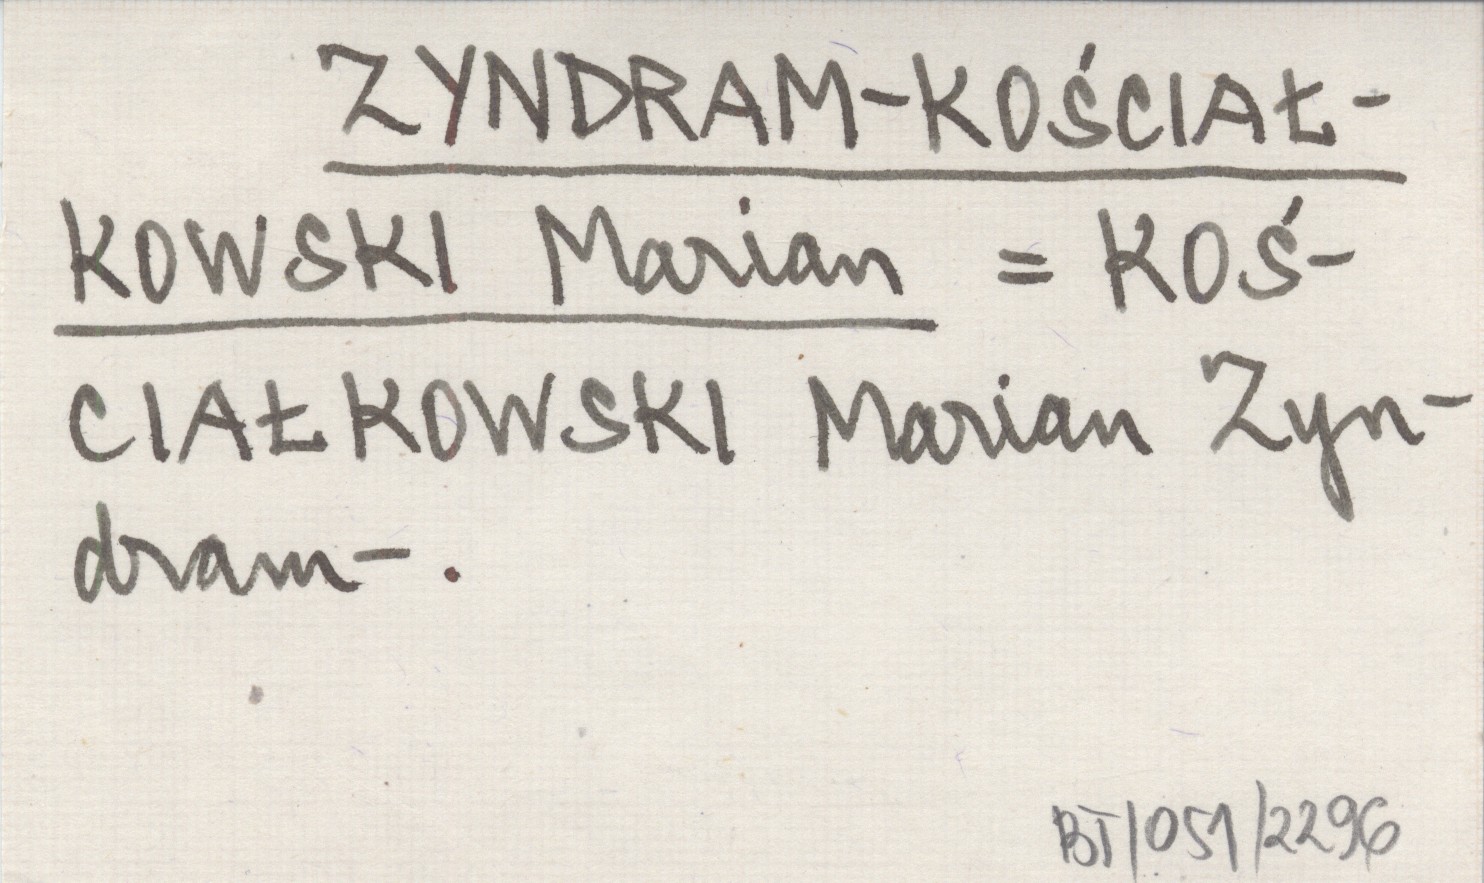 ZYNDRAM-KOŚCIAŁ-
KOWSKI Marian = KOŚ-
CIAŁKOWSKI Marian Zyn-
dram-.
BT/051/2296